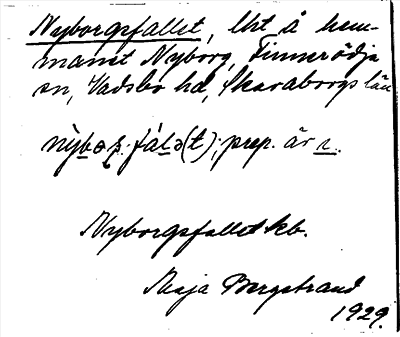 Nyborgsfallet, lht å hem-
manit Nyborg, Finnerödja
sn, Vadsbo hd, Skaraborgs län
prep. är ı.
Nyborgsfallet kb.
Maja Bergstrand
1929.